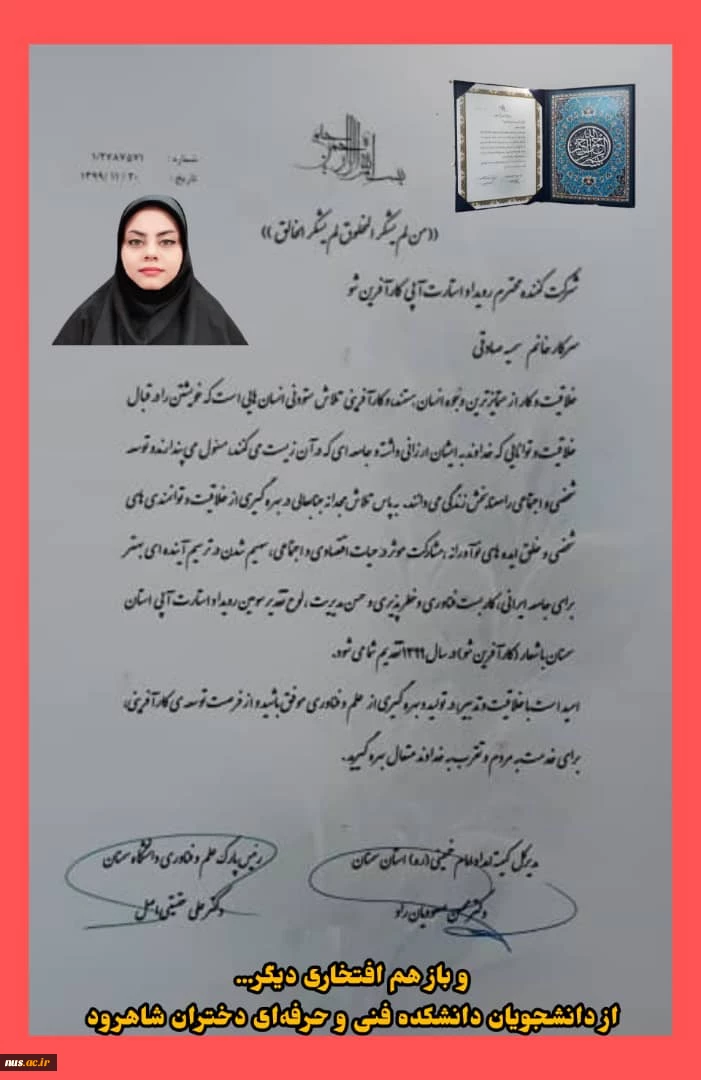 شماره: ۱/۲۷۸۷۵۷۱
تاریخ: ۱۳۹۹/۱۱/۲۰
بسم الله الرحمن الرحیم
((من لم یشکر المخلوق لم یشکر الخالق))
شرکت کننده محترم رویداد استارت آپی کارآفرین شو
سرکار خانم سمیه صادقی
خلاقیت و کار از متمایزترین وجوه انسان هستند، و کارآفرینی تلاش ستودنی انسان هایی است که خویشتن را در قبال
خلاقیت و توانایی که خداوند به ایشان ارزانی داشته و جامعه ای که در آن زیست می کنند، مسئول می پندارند و توسعه
شخصی و اجتماعی را معنا بخش زندگی می دانند. به پاس تلاش مجدانه جنابعالی در بهره گیری از خلاقیت و توانمندی های
شخصی و خلق ایده های نوآورانه، مشارکت موثر در حیات اقتصادی و اجتماعی، سهیم شدن در ترسیم آینده ای بهتر
برای جامعه ایرانی، کاربست فناوری و خطرپذیری و حسن مدیریت، لوح تقدیر سومین رویداد استارت آپی استان
سمنان با شعار (کارآفرین شو) در سال ۱۳۹۹ تقدیم شما می شود.
امید است با خلاقیت و تدبیر، در تولید و بهره گیری از علم و فناوری موفق باشید و از فرصت توسعه ی کارآفرینی،
برای خدمت به مردم و تقرب به خداوند متعال بهره گیرید.
مدیرکل کمیته امداد امام خمینی (ره) استان سمنان
دکتر محسن مسعودیان راد
رئیس پارک علم و فناوری دانشگاه سمنان
دکتر علی حقیقی اصل
و باز هم افتخاری دیگر...
از دانشجویان دانشکده فنی و حرفه‌ای دختران شاهرود
nus.ac.ir